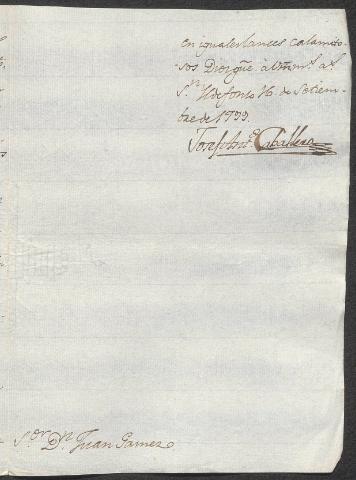 en iguales lances calamito-
sos Dios gũe à Vm m.s a.s
S.n Ildefonso 16 de Setiem-
bre de 1799.
Joseph Ant.o Caballero
S.or D.n Juan Gamez